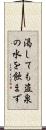 渇しても盗泉
の水を飲まず